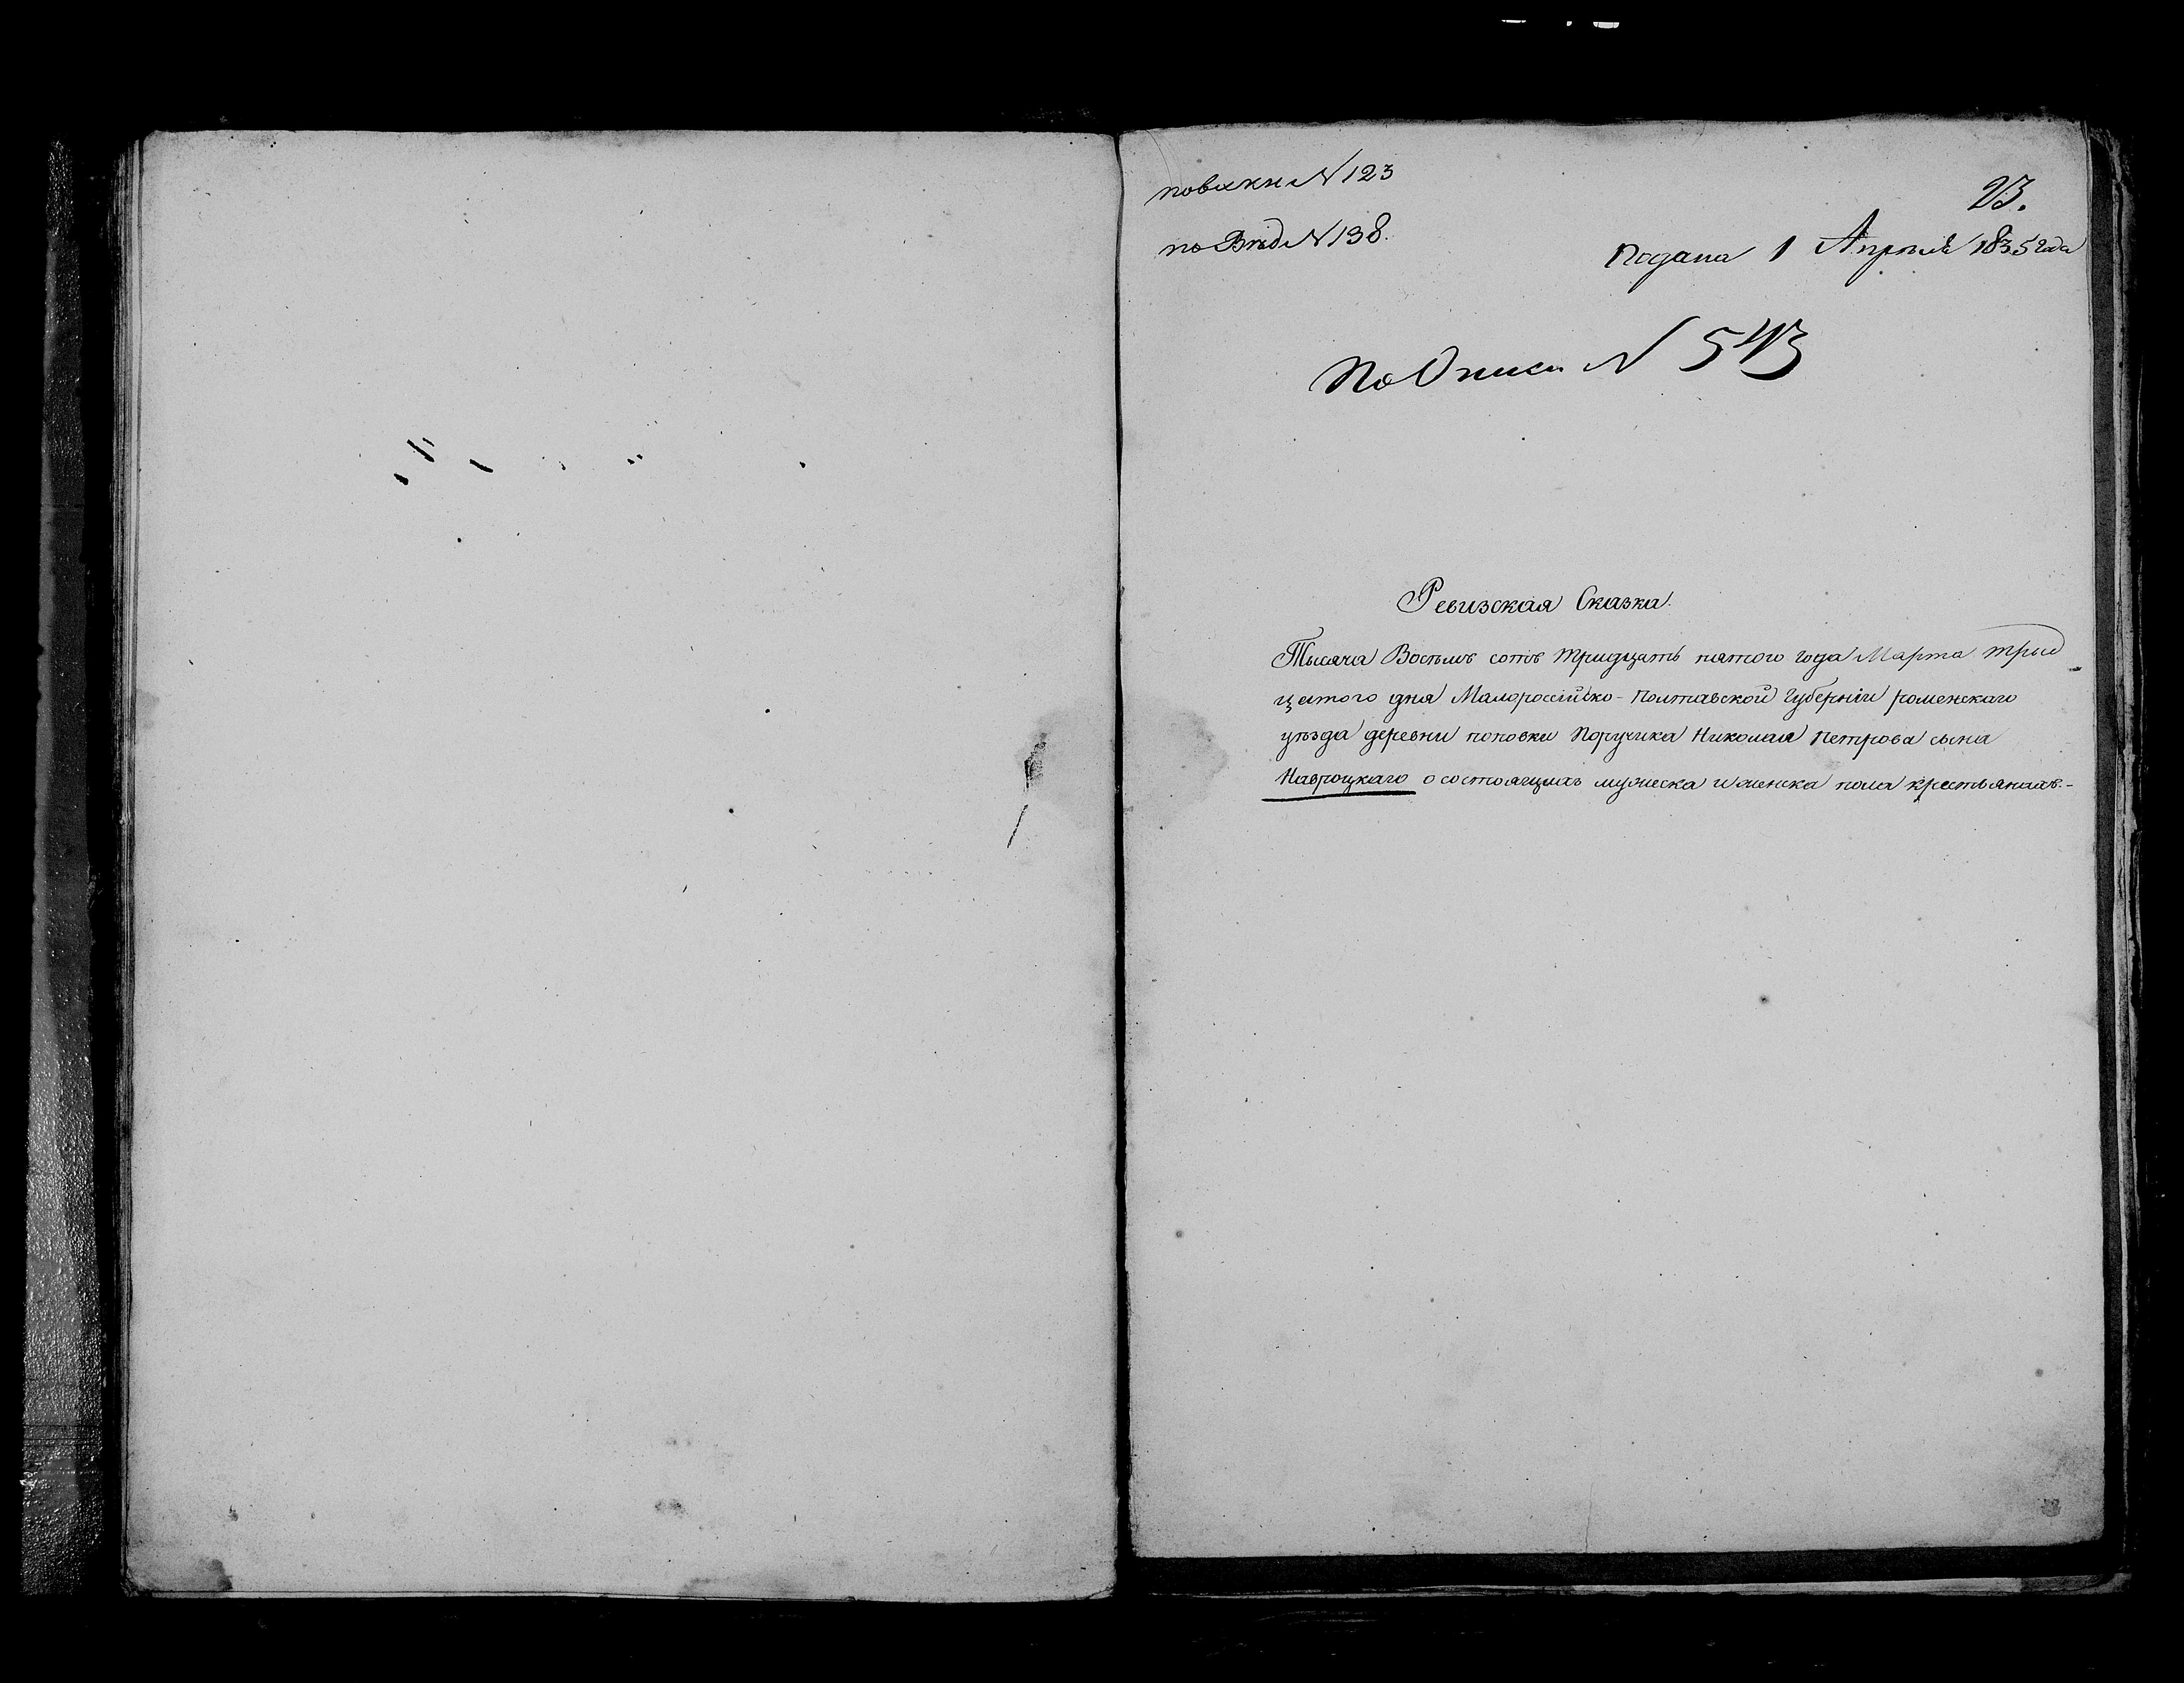 по вѣд N 138.
23.
Подана 1 Апрѣля 1835 года
По Описи N 543
Ревизская Сказка.
Тысяча Восемъ сотъ тридцать пятого года Марта трид
цатого дня Малороссійско-Полтавской Губерніи роменскаго
уѣзда деревни поповки Поручика Николая Петрова сына
Навроцкаго о состоящихъ мужеска и женска пола крестьянахъ.-